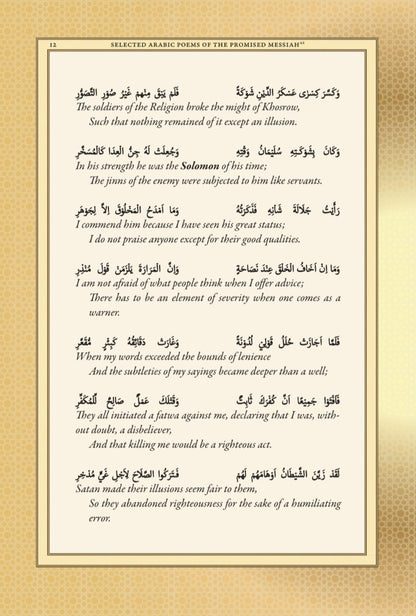 12 SELECTED ARABIC POEMS OF THE PROMISED MESSIAH as
وَكَسَّرَ كِسْرٰى عَسْكَرُ الدِّيْنِ شَوْكَةً فَلَمْ يَبْقَ مِنْهُمْ غَيْرُ صُوَرِ التَّصَوُّرِ
The soldiers of the Religion broke the might of Khosrow,
Such that nothing remained of it except an illusion.
وَكَانَ بِشَوْكَتِهٖ سُلَيْمَانُ وَقْتِهٖ وَجُعِلَتْ لَهُ جِنُّ الْعِدَا كَالْمُسَخَّرِ
In his strength he was the Solomon of his time;
The jinns of the enemy were subjected to him like servants.
رَأَيْتُ جَلَالَةَ شَأْنِهٖ فَذَكَرْتُهُ وَمَا اَمْدَحُ الْمَخْلُوْقَ اِلَّا لِجَوْهَرِ
I commend him because I have seen his great status;
I do not praise anyone except for their good qualities.
وَمَا اِنْ اَخَافُ الْخَلْقَ عِنْدَ نَصَاحَةٍ وَاِنَّ الْمَرَارَةَ يَلْزَمَنْ قَوْلَ مُنْذِرِ
I am not afraid of what people think when I offer advice;
There has to be an element of severity when one comes as a
warner.
فَلَمَّا اَجَازَتْ حُلَلُ قَوْلِيْ لُدُوْنَةً وَغَارَتْ دَقَائِقُهُ كَبِئْرٍ مُّقَعَّرِ
When my words exceeded the bounds of lenience
And the subtleties of my sayings became deeper than a well;
فَاَفْتَوْا جَمِيْعًا اَنَّ كُفْرَكَ ثَابِتٌ وَقَتْلَكَ عَمَلٌ صَالِحٌ لِّلْمُكَفِّرِ
They all initiated a fatwa against me, declaring that I was, with-
out doubt, a disbeliever,
And that killing me would be a righteous act.
لَقَدْ زَيَّنَ الشَّيْطَانُ اَوْهَامَهُمْ لَهُمْ فَتَرَكُوا الصَّلَاحَ لِاَجْلِ غَيٍّ مُّدْخِرِ
Satan made their illusions seem fair to them,
So they abandoned righteousness for the sake of a humiliating
error.